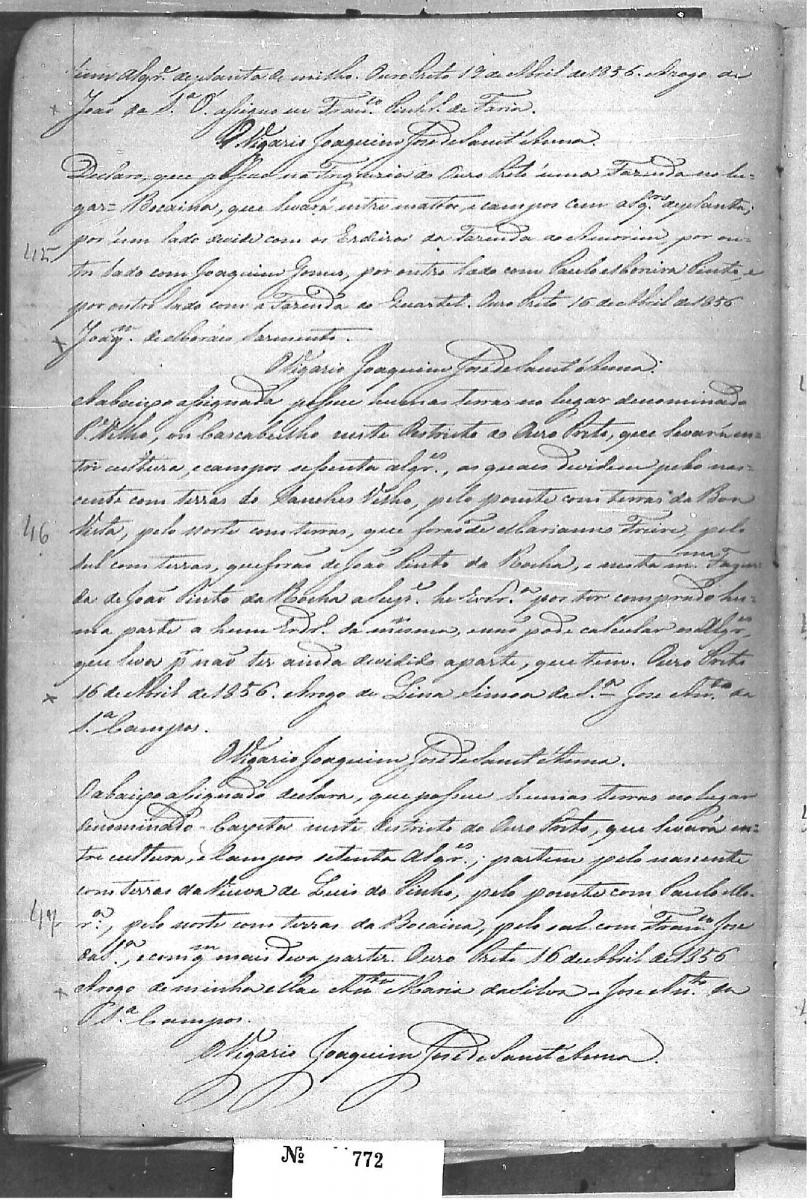 um Alqr.e de planta de milho. Ouro Preto 19 de Abril de 1856. Arogo de
João da S.a O. assigno eu Fran.co Pinh.o de Faria.
O Vigario Joaquim José de Sant'Anna.
Declaro, que possuo na Freguezia do Ouro Preto uma Fazenda no lu-
gar = Bocaina, que levará entre mattos, e campos cem alqr.es de planta;
45
por um lado divide com os Erdeiros da Fazenda do Amorim, por ou-
tro lado com Joaquim Gomes, por outro lado com Paulo Moreira Pinto, e
por outro lado com a Fazenda do Quartel. Ouro Preto 16 de Abril de 1856
Joaq.m de Moraes Sarmento.
O Vigario Joaquim José de Sant'Anna.
A abaixo assignada possue humas terras no lugar denominado
P. Velho, ou Cascabulho neste Destricto do Ouro Preto, que levará en-
tre cultura, e campos sessenta alqr.es, as quais dividem pelo nas-
cente com terras do Sanches Velho, pelo poente com terras da Boa
46
Vista, pelo Norte com terras, que forão de Marianno Freire, pelo
sul com terras, que forão de João Pinto da Rocha, e nesta m.ma Fazen-
da de João Pinto da Rocha a Sup.e he Erdr.a por ter comprado hu-
ma parte a hum Erdr.o da mesma, e não pode calcular os Alqr.es,
que leva p.r não ter ainda dividido a parte, que tem. Ouro Preto
16 de Abril de 1856. Arogo de Lina Simoa da S.a José Ant.o da
S.a Campos.
O Vigario Joaquim José de Sant'Anna.
O abaixo assignado declara, que possue humas terras no lugar
denominado - Carpita neste destricto do Ouro Preto, que levará en-
tre cultura, e Campos setenta Alqr.es; partem pelo nascente
com terras da Viuva de Luis do Pinho, pelo poente com Paulo Mo-
47
r.a, pelo Norte com terras da Bocaina, pelo sul com Fran.co José
da S.a, e com q.m mais deva partir. Ouro Preto 16 de Abril de 1856
Arogo de minha Mãe Ant.a Maria da Silva José Ant.o da
S.a Campos.
O Vigario Joaquim José de Sant'Anna.
Nº 772